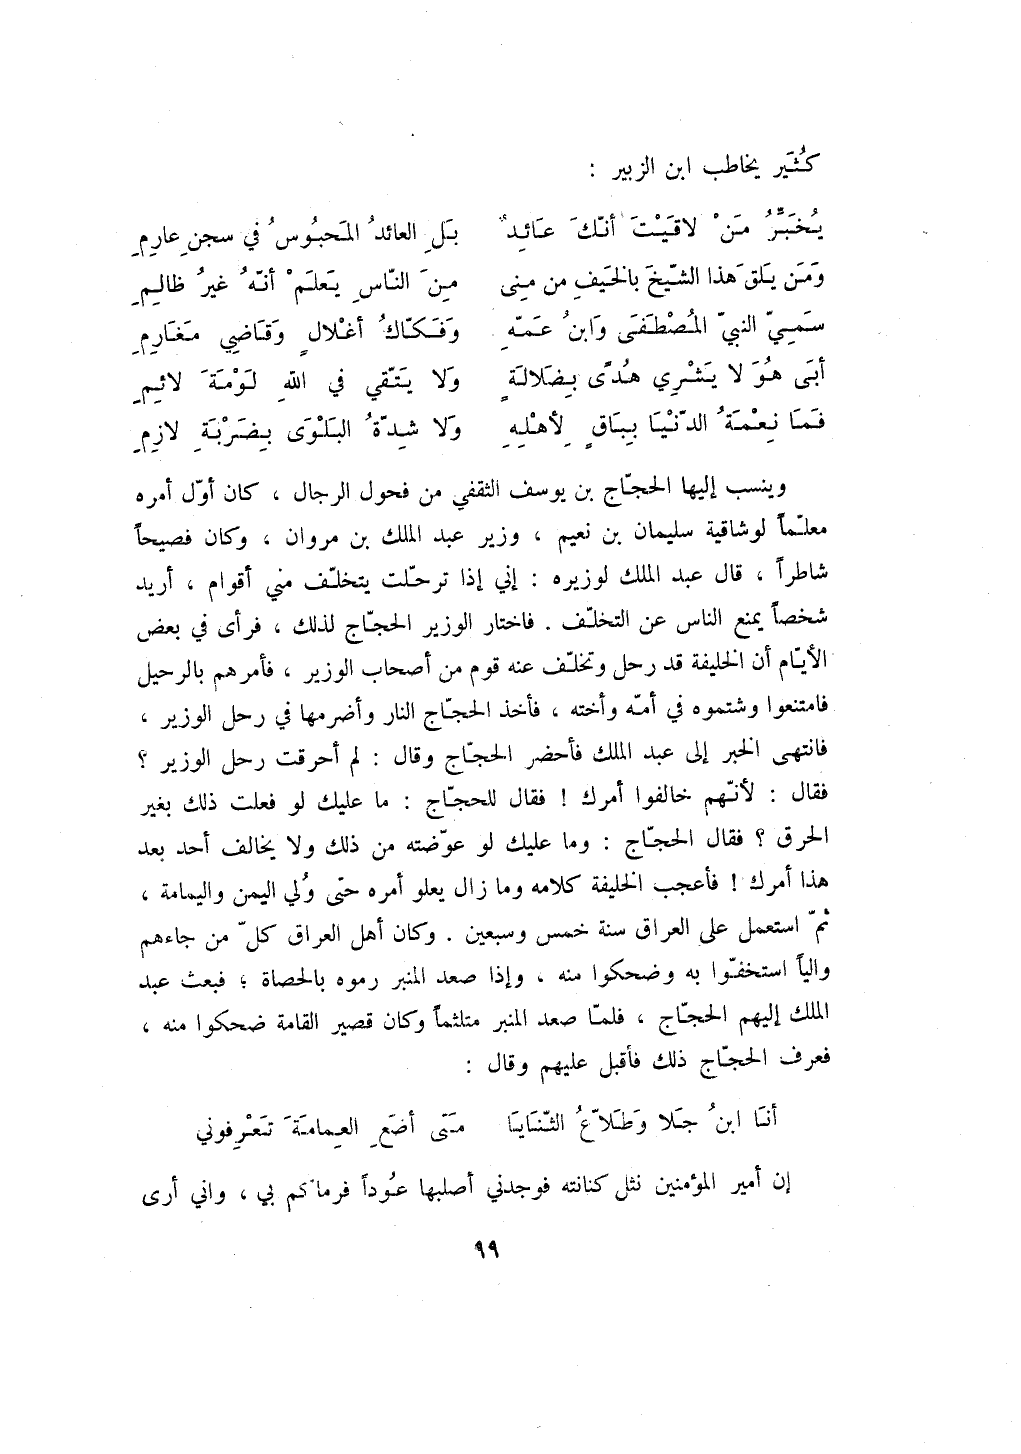 كُثَير يخاطب ابن الزبير :
يُخَبِّرُ مَنْ لاقَيْتَ أنّكَ عَائِدٌ بَلِ العائدُ المَحبُوسُ في سجنِ عارِمِ
وَمَن يَلقَ هذا الشّيخَ بالخَيفِ من مِنى مِنَ النّاسِ يَعلَمْ أنّهُ غيرُ ظالِمِ
سَمِيّ النبيّ المُصْطَفَى وَابنُ عَمّهِ وَفَكّاكُ أغْلالٍ وَقَاضِي مَغَارِمِ
أبَى هُوَ لا يَشْرِي هُدًى بِضَلالَةٍ وَلا يَتّقي في اللهِ لَوْمَةَ لائِمِ
فَمَا نِعْمَةُ الدّنْيَا بِبَاقٍ لأهْلِهِ وَلا شِدّةُ البَلْوَى بِضَرْبَةِ لازِمِ
وينسب إليها الحجّاج بن يوسف الثقفي من فحول الرجال ، كان أوّل أمره
معلّماً لوشاقية سليمان بن نعيم ، وزير عبد الملك بن مروان ، وكان فصيحاً
شاطراً ، قال عبد الملك لوزيره : إني إذا ترحّلت يتخلّف مني أقوام ، أريد
شخصاً يمنع الناس عن التخلّف . فاختار الوزير الحجّاج لذلك ، فرأى في بعض
الأيّام أن الخليفة قد رحل وتخلّف عنه قوم من أصحاب الوزير ، فأمرهم بالرحيل
فامتنعوا وشتموه في أمّه وأخته ، فأخذ الحجّاج النار وأضرمها في رحل الوزير ،
فانتهى الخبر إلى عبد الملك فأحضر الحجّاج وقال : لم أحرقت رحل الوزير ؟
فقال : لأنّهم خالفوا أمرك ! فقال للحجّاج : ما عليك لو فعلت ذلك بغير
الحرق ؟ فقال الحجّاج : وما عليك لو عوّضته من ذلك ولا يخالف أحد بعد
هذا أمرك ! فأعجب الخليفة كلامه وما زال يعلو أمره حتّى وُلي اليمن واليمامة ،
ثمّ استعمل على العراق سنة خمس وسبعين . وكان أهل العراق كلّ من جاءهم
والياً استخفّوا به وضحكوا منه ، وإذا صعد المنبر رموه بالحصاة ؛ فبعث عبد
الملك إليهم الحجّاج ، فلمّا صعد المنبر متلثماً وكان قصير القامة ضحكوا منه ،
فعرف الحجّاج ذلك فأقبل عليهم وقال :
أنَا ابنُ جَلا وَطَلاّعُ الثّنَايَا مَتَى أضَعِ العِمامَةَ تَعْرِفوني
إن أمير المؤمنين نثل كنانته فوجدني أصلبها عُوداً فرماكم بي ، واني أرى
٩٩